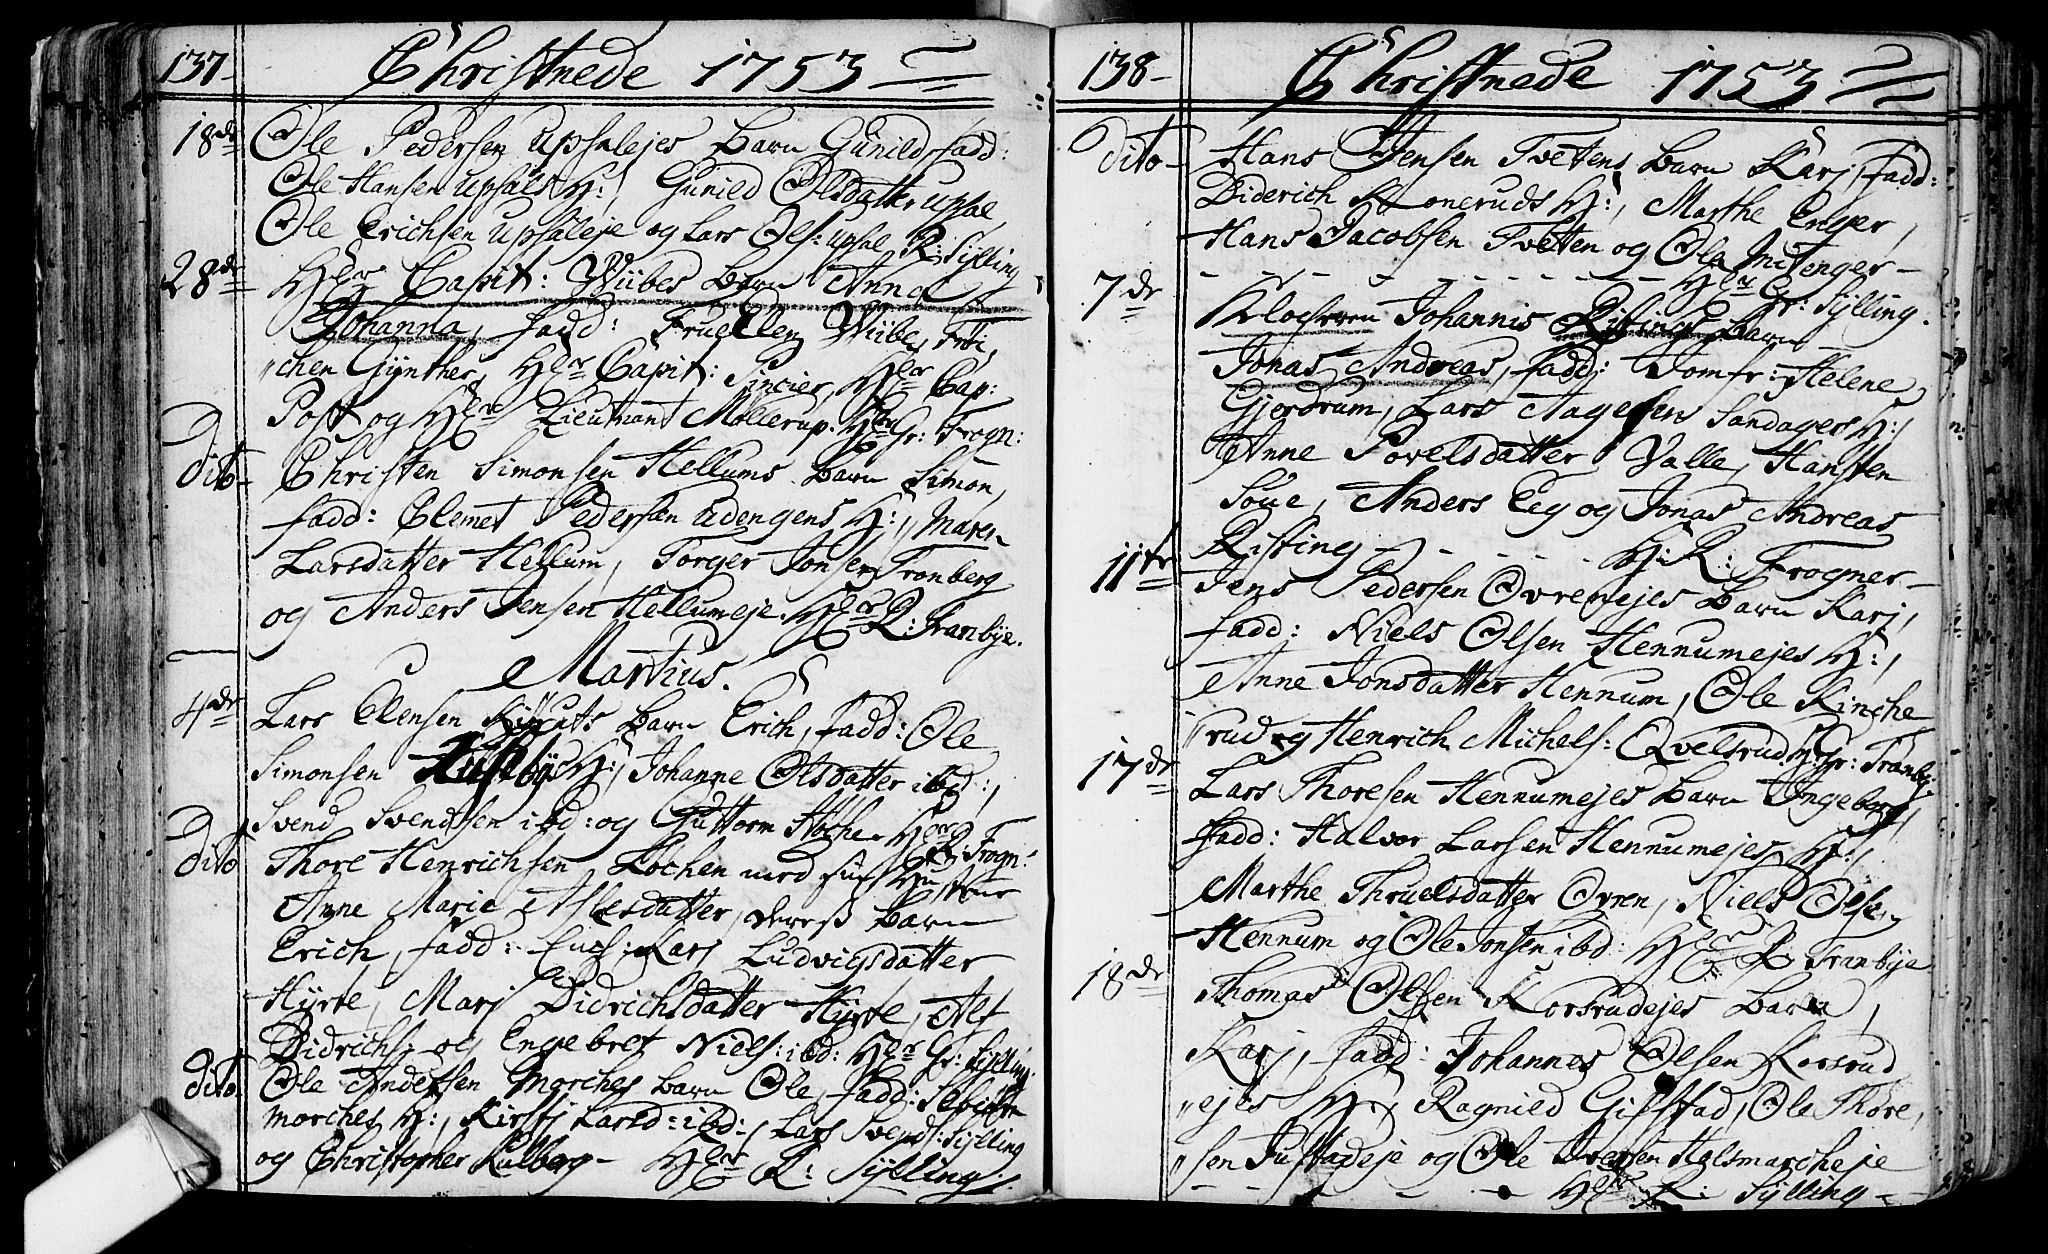 137-
Christnede 1753
18de Ole Pedersen Upsalejes Barn Gunild, fadd:
Ole Hansen Upsals H:, Gunild Olsdatter Upsal,
Ole Erichsen Upsaleje og Lars Ols: Upsal R: Sÿlling
28de Hr Capit: Wiibes Barn Anna
Johanna, fadd: Fruellen Wiibe,
chen Gÿnther, Hr Capit: Sincier, Hr Cap:
Post og Hr Lieutnant Møllerup. Hr Gr: Frogn:
dito- Christen Simonsen Hellums Barn Simon,
fadd: Clemet Pedersen Edengens H:, Maren
Larsdatter Hellum, Torger Jonsen Tronberg
og Anders Jensen Hellumeje. Hr R: Tranbÿe.
Martius.
4de Lars Elensen Barn Erich, fadd: Ole
Simonsen H:, Johanne Olsdatter ibd:,
Svend Svendsen ibd: og Guttorm Hr R: Frogn:
dito Thore Henrichsen Kochen med sin Hustrue
Anne Marie Alfesdatter, deres Barn
Erich, fadd: Karj Ludvigsdatter
Hÿrre, Marj Didrichsdatter Hÿrre, Alf
Didrichs: og Engebret Niels: ibd: Hr Gr: Sÿlling.
dito. Ole Andersen Morches Barn Ole, fadd:
Morches H:, Kirstj Larsd: ibd:, Lars Svends: Sÿlling
og Christopher Kulberg- Hr R: Sÿlling.
138-
Christnede 1753
dito- Hans Jensen Tvetens Barn Karj, fadd:
Diderich Koneruds H:, Marthe Enger,
Hans Jacobsen Tveten og Ole Enger-
Hr Gr: Sÿlling.
7de Klocheren Johannis Risting Barn
Jonas Andreas, fadd: Jomfr: Helene
Gjerdrum, Lars Aagesen Sandagers H:,
Anne Povelsdatter Valle, Hans
Soue, Anders Eeg og Jonas Andreas
Risting- H: R: Frogner-
11te Jens Pedersen Ovrenejes Barn Karj,
fadd: Niels Olsen Hennumejes H:,
Anne Jonsdatter Hennum, Ole Kinche
rud og Henrich Michels: Qvelsrud Hr Gr: Tranbÿ:
17de Lars Thoresen Hennumejes Barn Ingeborg,
fadd: Halvor Larsen Hennumejes H:,
Marthe Thruelsdatter Ovren, Niels Olsen
Hennum og Ole Jonsen ibd: Hr R Tranbÿe
18de Thomas Olsen Korsrudejes Barn,
Karj, fadd: Johannes Olsen Korsrud
ejes H:, Ragnild Gilstad, Ole Thore,
sen Justadeje og Ole Iversen Halsmarcheje
Hr R: Sÿlling-